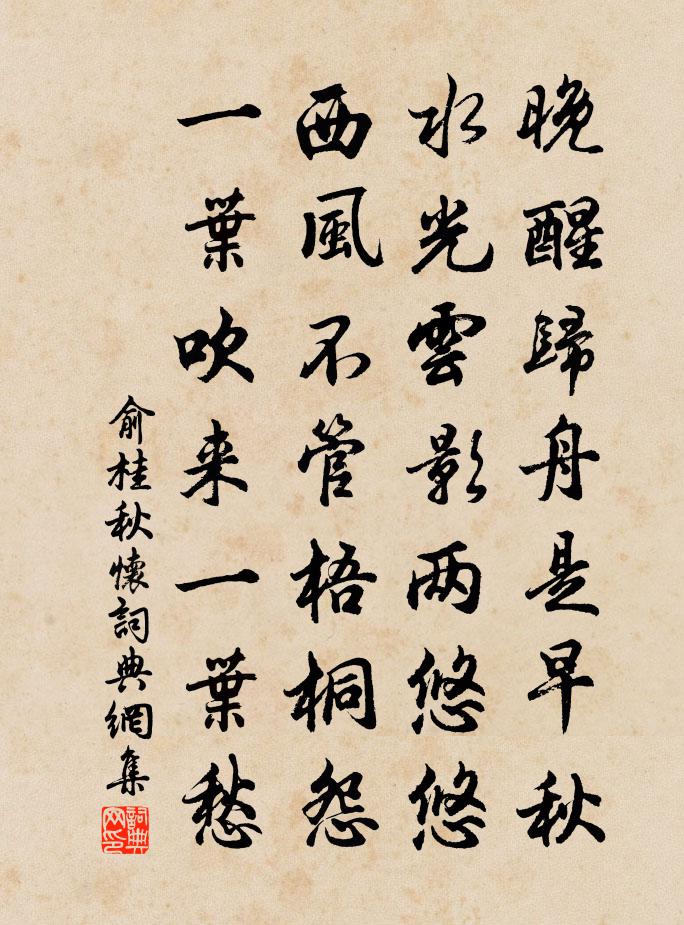 晚醒歸舟是早秋
水光雲影两悠悠
西風不管梧桐怨
一葉吹来一葉愁
俞桂秋懷詞典網集
詞典网印